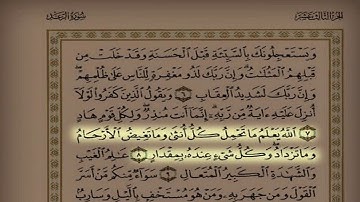 الجزء الثالث عشر
سورة الرعد
وَيَسْتَعْجِلُونَكَ بِٱلسَّيِّئَةِ قَبْلَ ٱلْحَسَنَةِ وَقَدْ خَلَتْ مِن
قَبْلِهِمُ ٱلْمَثُلَٰتُ وَإِنَّ رَبَّكَ لَذُو مَغْفِرَةٍ لِّلنَّاسِ عَلَىٰ ظُلْمِهِمْ
وَإِنَّ رَبَّكَ لَشَدِيدُ ٱلْعِقَابِ ٦ وَيَقُولُ ٱلَّذِينَ كَفَرُوا۟ لَوْلَآ
أُنزِلَ عَلَيْهِ ءَايَةٌ مِّن رَّبِّهِۦٓ إِنَّمَآ أَنتَ مُنذِرٌ وَلِكُلِّ قَوْمٍ هَادٍ
٧ ٱللَّهُ يَعْلَمُ مَا تَحْمِلُ كُلُّ أُنثَىٰ وَمَا تَغِيضُ ٱلْأَرْحَامُ
وَمَا تَزْدَادُ وَكُلُّ شَىْءٍ عِندَهُۥ بِمِقْدَارٍ ٨ عَٰلِمُ ٱلْغَيْبِ
وَٱلشَّهَٰدَةِ ٱلْكَبِيرُ ٱلْمُتَعَالِ ٩ سَوَآءٌ مِّنكُم مَّنْ أَسَرَّ
ٱلْقَوْلَ وَمَن جَهَرَ بِهِۦ وَمَنْ هُوَ مُسْتَخْفٍۭ بِٱلَّيْلِ وَسَارِبٌۢ